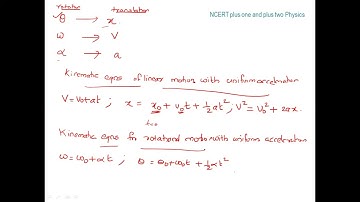 rotation translation
θ → x
NCERT plus one and plus two Physics
ω → v
α → a
Kinematic eqns of linear motion with uniform acceleration
V = v₀+at ; x = x₀ + v₀t + ½ at² ; V² = V₀² + 2ax.
t=0
Kinematic eqns for rotational motion with uniform acceleration
ω = ω₀ + αt ; θ = θ₀ + ω₀t + ½ αt²